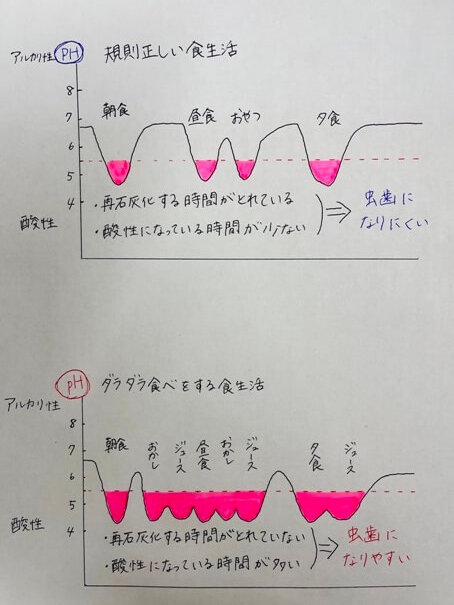 アルカリ性 PH 規則正しい食生活
8
朝食 昼食 おやつ 夕食
7
6
5
4
・再石灰化する時間がとれている
酸性
・酸性になっている時間が少ない
⇒ 虫歯に
なりにくい
pH ダラダラ食べをする食生活
アルカリ性
8
朝食 おかし ジュース 昼食 おかし ジュース 夕食 ジュース
7
6
5
酸性
4
・再石灰化する時間がとれていない
・酸性になっている時間が多い
⇒ 虫歯に
なりやすい